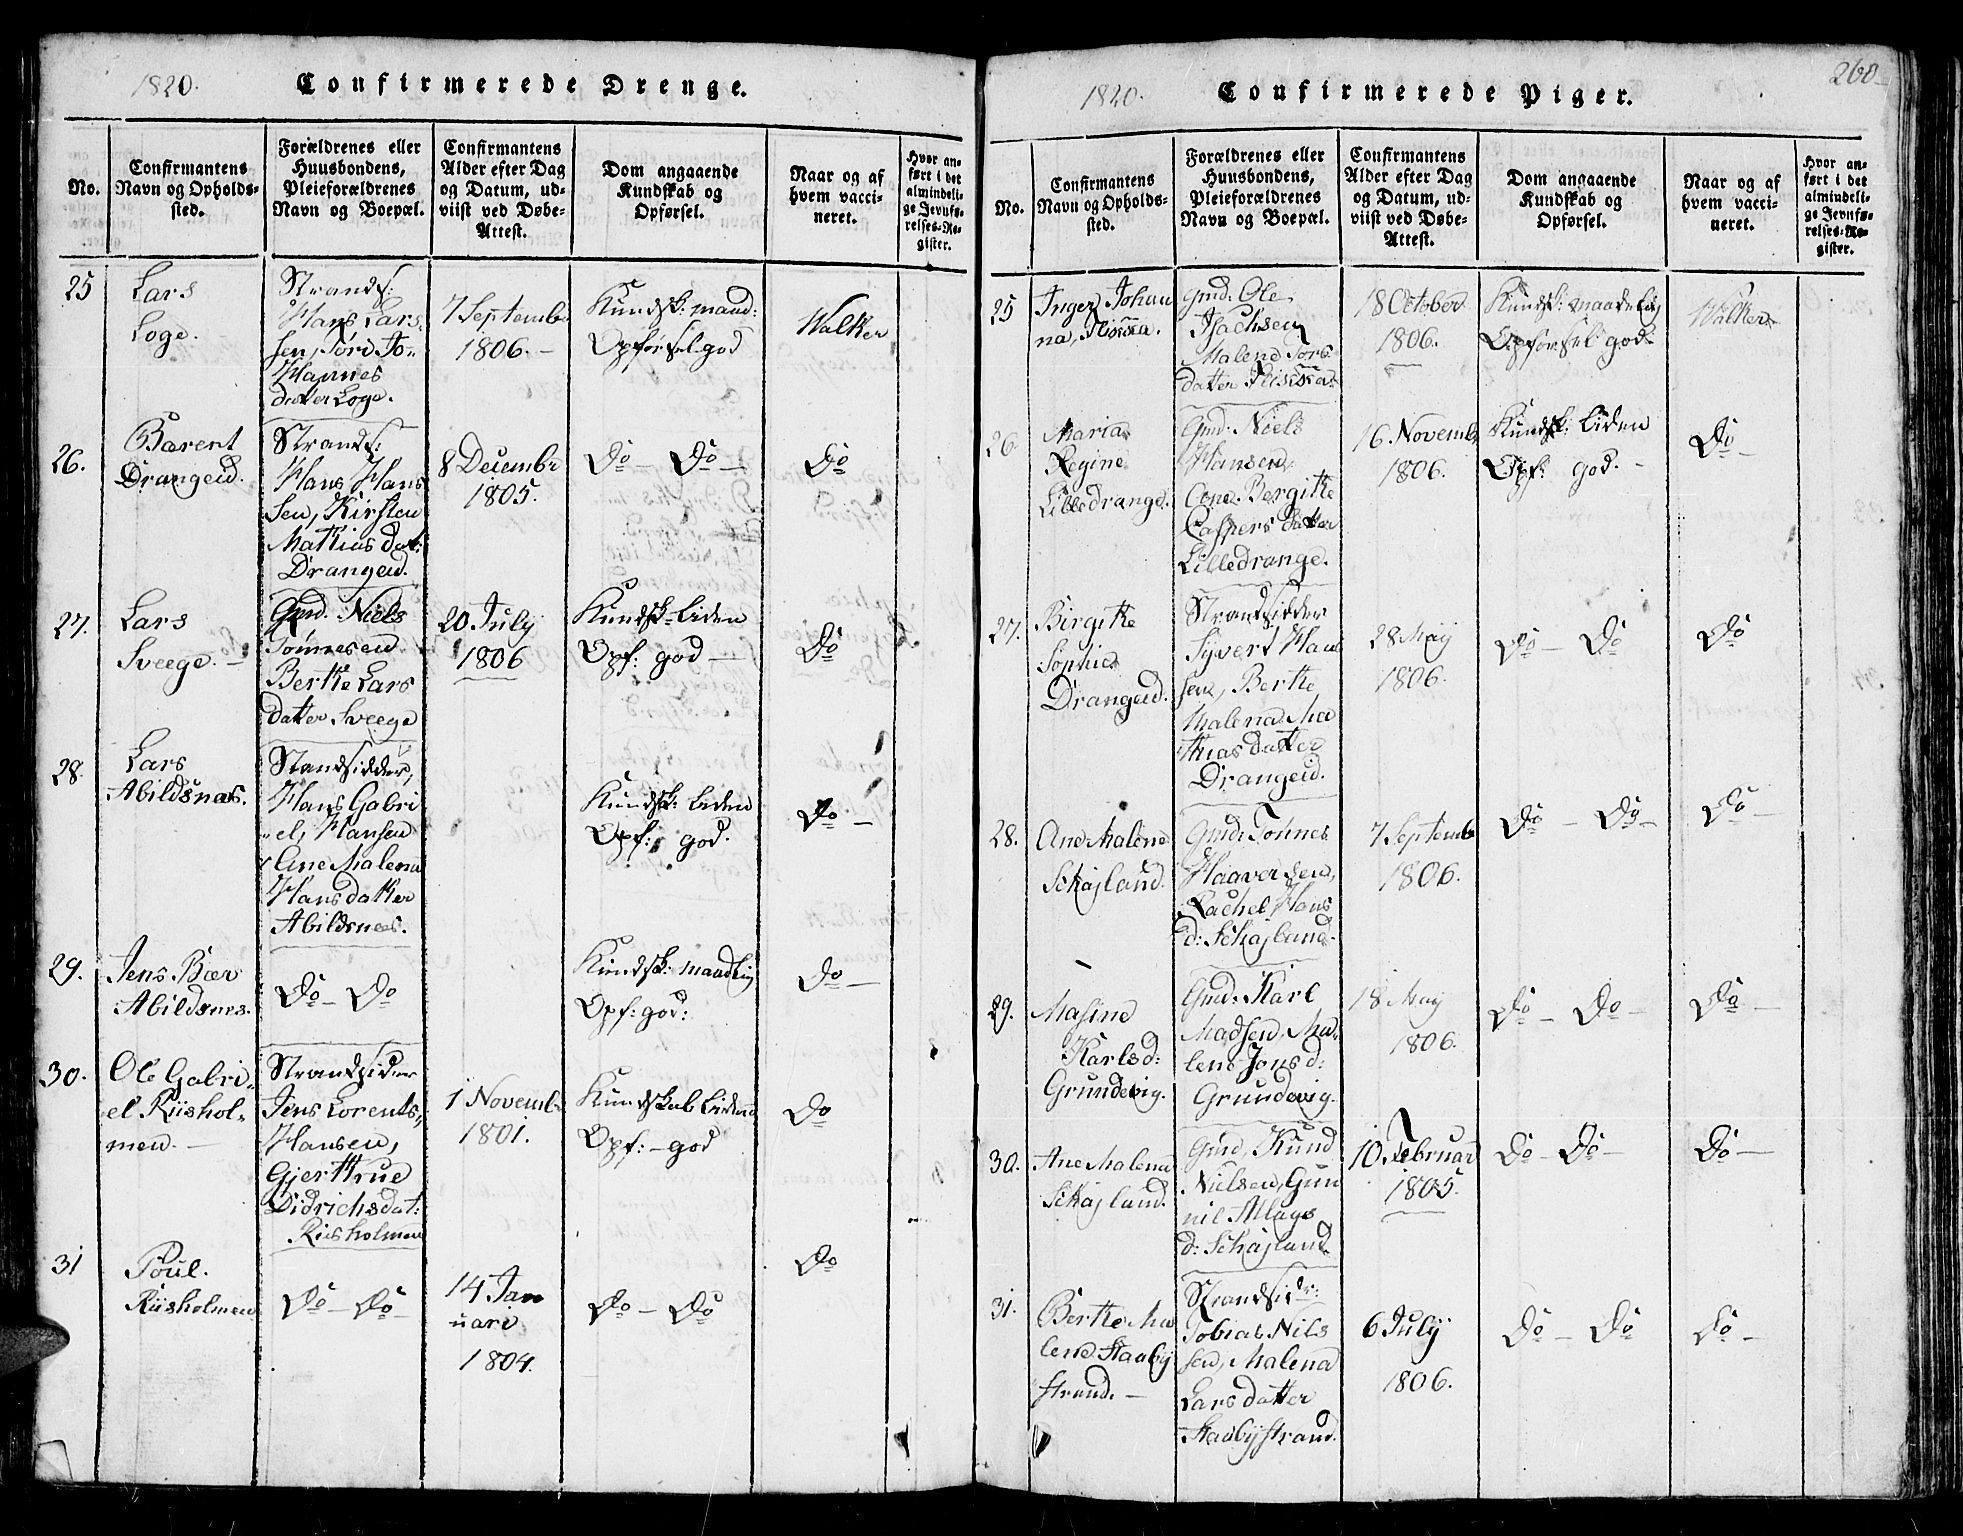 1820.
Confirmerede Drenge.
No.
Confirmantens
Navn og Opholds-
sted.
Forældrenes eller
Huusbondens,
Pleieforældrenes
Navn og Boepæl.
Confirmantens
Alder efter Dag
og Datum, ud-
viist ved Døbe-
Attest.
Dom angaaende
Kundskab og
Opførsel.
Naar og af
hvem vacci-
neret.
Hvor an-
ført i det
almindeli-
ge Jevnfø-
relses-Re-
gister.
25
Lars
Loge.
Strands:
Hans Lars-
sen, Tøri Jo-
Hannes
datter Loge.
7 September
1806. -
Kundsk: maad:
Opførsel god
Walker
26.
Barent
Drangeid.
Strands:
Hans Hans
sen, Kirsten
Mathias dat:
Drangeid.
8 Decembr
1805.
Do - Do -
Do
27.
Lars
Sveege. -
Gmd. Niels
Tønnesen
Berthe Lars
datter Sveege
20 July
1806
Kundsk- Liden
Opf: god -
Do
28.
Lars
Abildsnæs.
Standsidder,
Hans Gabri
el, Hansen
Ane Malena
Hansdatter
Abildsnees.
Kundsk: Liden
Opf: god.
Do -
29.
Jens Bær
Abildsnes.
Do - Do
Kundsk: maadlig
Opf: god:
Do -
30.
Ole Gabri-
el Riishol-
men. -
Strandsidder
Jens Lorents,
Hansen,
Gjerttrue
Didrichsdat:
Riisholmen
1 Novembr
1801.
Kundskab Liden
Opf: - god
Do
31
Poul.
Riisholmen
Do - Do -
14 Jan
uari
1804.
Do - Do
Do
1820.
Confirmerede Piger.
260
No.
Confirmantens
Navn og Opholds-
sted.
Forældrenes eller
Huusbondens,
Pleieforældrenes
Navn og Boepæl.
Confirmantens
Alder efter Dag
og Datum, ud-
viist ved Døbe-
Attest.
Dom angaaende
Kundskab og
Opførsel.
Naar og af
hvem vacci-
neret.
Hvor an-
ført i det
almindeli-
ge Jevnfø-
relses-Re-
gister.
25
Inger Johan
na,
Gmd: Ole
Isachsen
Malene Tors
datter
18 October
1806.
Kundsk: maadelig
Opførsel god
Walker
26.
Maria
Regine
Lilledrange.
Gmd. Niels
Hansen,
Cone. Bergitte
Caspers datter
Lilledrange.
16. Novembr
1806.
Kundsk: Liden
Opf: god. -
Do -
27.
Birgitte
Sophie
Drangeid.
Strandsidder
Syvert Han
sen, Berthe
Malena Ma
thias datter
Drangeid.
28 May
1806.
Do - Do
Do
28.
Ane Malene
Schajland.
Gmd: Tønnes
Haaversen,
Rachel Hans
d: Schajland.
7 Septembr
1806.
Do - Do -
Do -
29.
Masine
Karlsd:
Grundevig.
Gmd: Karl
Madsen, Ma-
lene Jons d:
Grundevig.
18 May
1806.
Do - Do -
Do -
30.
Ane Malena
Schajland.
Gmd, Knud
Nielsen, Gun
nil Aslags
d: Schajland.
10 Februar
1805.
Do - Do -
Do -
31.
Berthe Ma
lene. Staaby
strand. -
Strandsidr:
Tobias Nils
sen, Malena
Lars datter
Staaby strand.
6 July
1806.
Do - Do
Do -